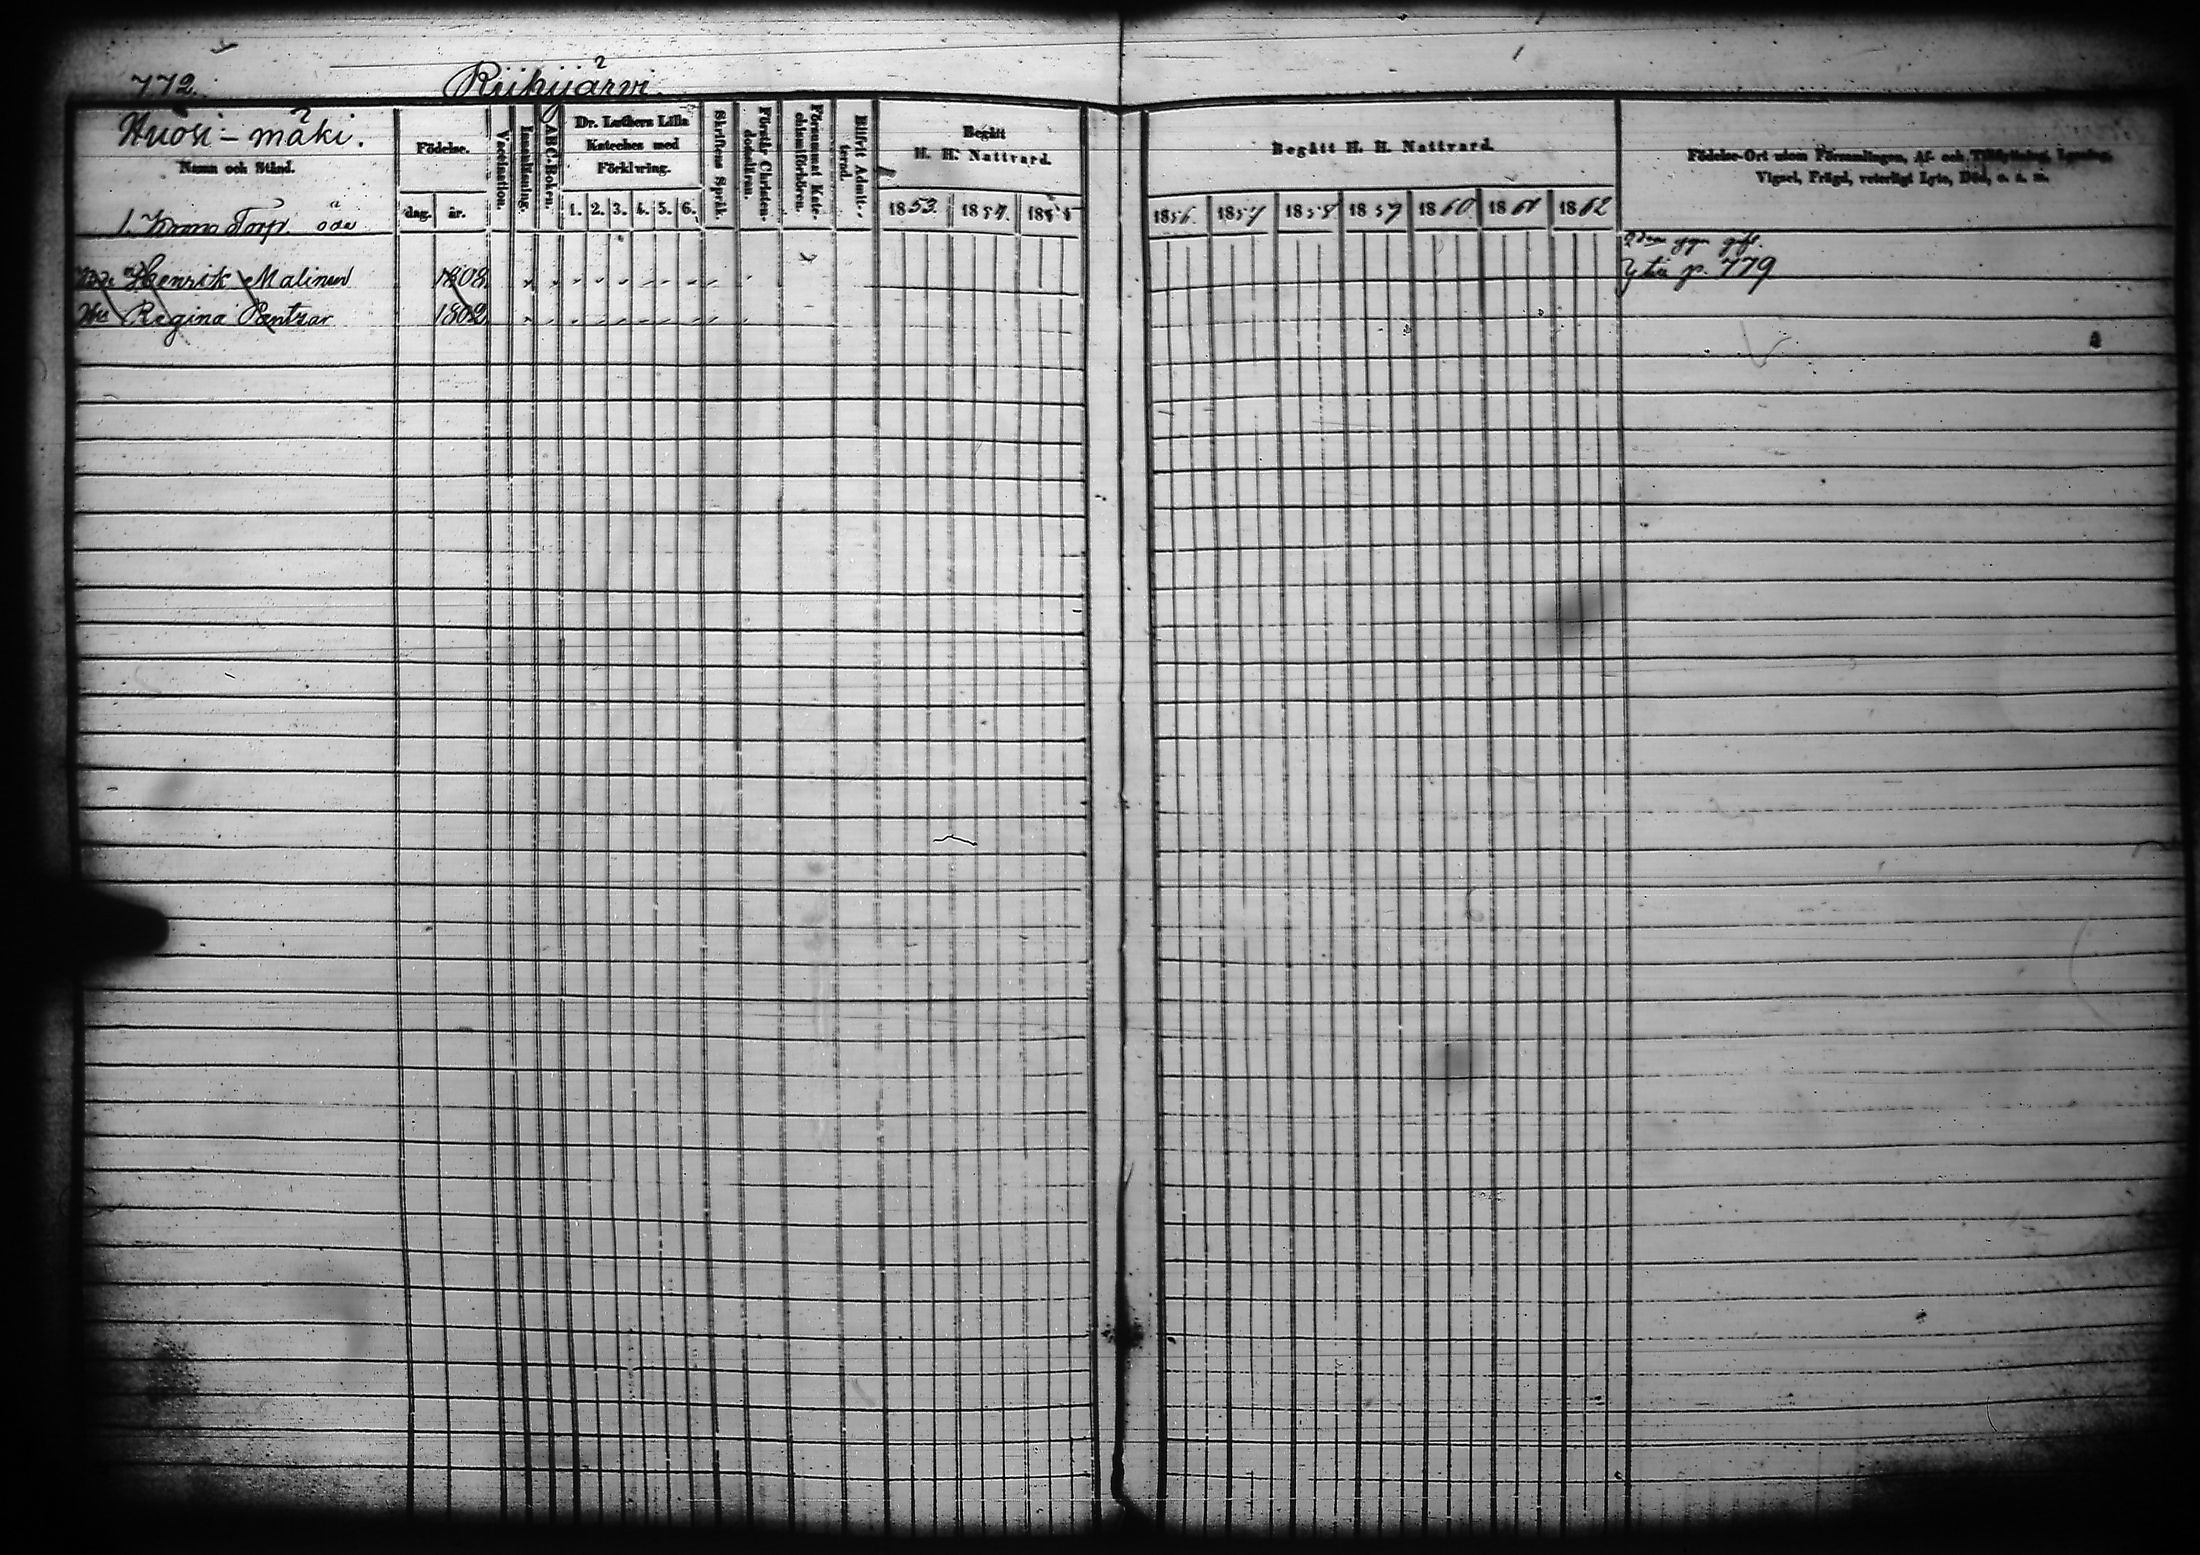 772. Riihijärvi.
Huosi-mäki.
Namn och Stånd.
Födelse.
dag. år.
Vaccination.
Innanläsning.
ABC-Boken.
Dr. Luthers Lilla
Kateches med
Förklaring.
1. 2. 3. 4. 5. 6.
Skriftens Språk.
Förstår Christen-
domsläran.
Försummat Kate-
chismiförhören.
Blifvit Admit-
terad.
Begått
H. H. Nattvard.
1853. 1854. 1855
Begått H. H. Nattvard.
1856. 1857 1858 1859 1860 1861 1862
Födelse-Ort utom Församlingen, Af- och Tillflyttning, Lysning,
Vigsel, Frägd, veterligt Lyte, Död, o. s. m.
1. Krono Torp öde
Henrik Malinen 1808
Hu Regina Pentzar 1802
p. 779